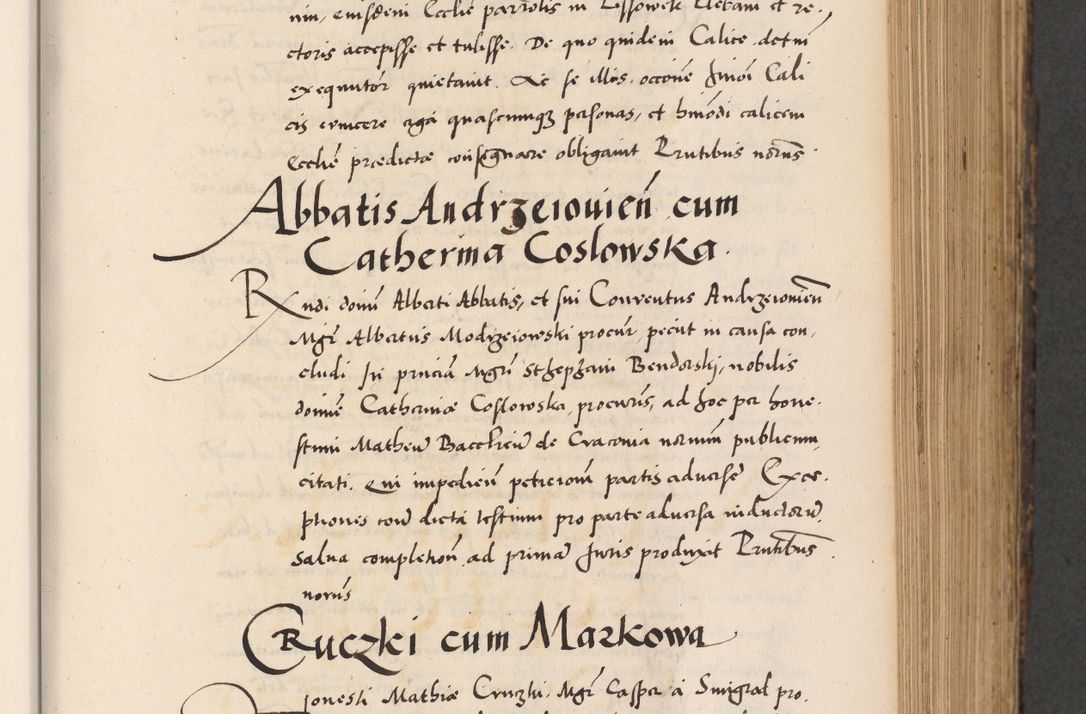 nin, eiusdem Ecclie parrolis in Lissowek Plebani et re,
ctoris accepisse et tulisse. De quo quidem Calice detni
exequutor quietavit. Ac se illos occone hmoi Cali
cis evincere erga quascumq; personas, et hmodi calicem
Ecclie predicte consegnare obligavit Prntibus notrus.
Abbatis Andrzeiouien cum
Catherina Coslowska.
Rndi domi Alberti Abbatis, et sui Conventus Andrzeiouien
Mgr Albertus Modrzeiowski procur, peciit in causa con,
cludi In pnciam Mgri Stephani Bendorskj, nobilis
domine Catherine Coslowska, procuris, ad hoc per hone,
stum Matheu Baccliceu de Cracovia norium publicum
citati. Qui impedien petitionem partis adverse Exce,
ptiones contra dicta testium pro parte adversa inductoru,
Salva completion ad prima Juris produxit Prntibus
norus
Cruczki cum Markowa
Honesti Mathie Cruczki, Mgr Casper a Smigral pro,